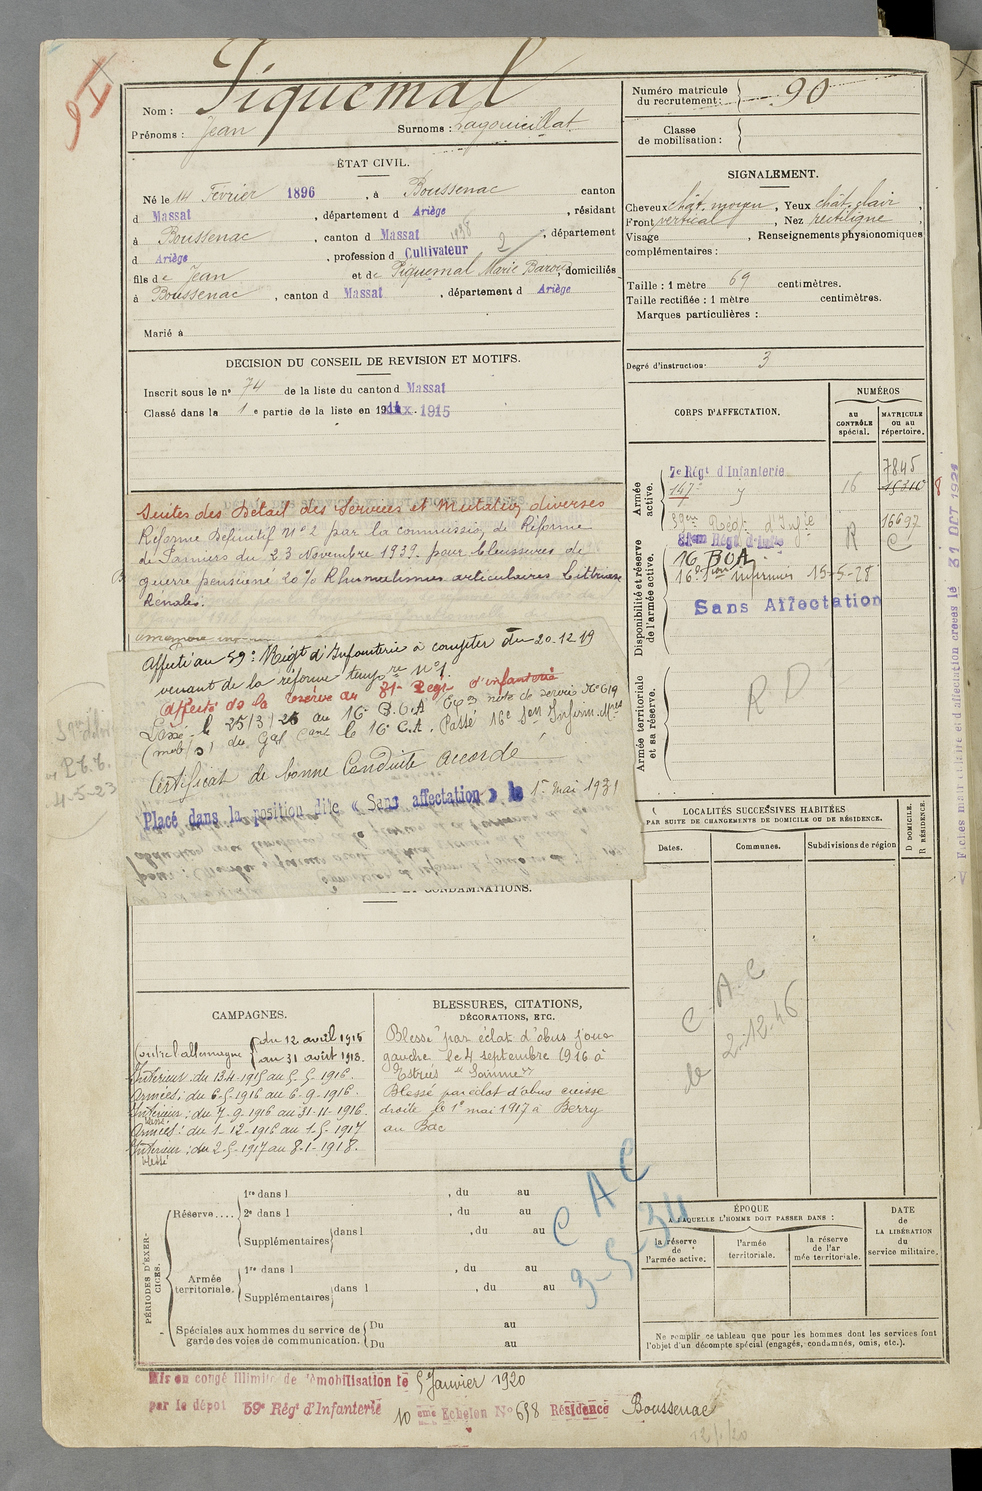 Nom : Piquemal
Prénoms : Jean Surnoms : Lagoueillat
Numéro matricule du recrutement : 90
Classe de mobilisation :
ÉTAT CIVIL.
Né le 14 Février 1896, à Boussenac canton
d Massat, département d Ariège, résidant
à Boussenac, canton d Massat, département
d Ariège, profession d Cultivateur
fils de Jean et de Piquemal Marie, domiciliés
à Boussenac, canton d Massat, département d Ariège
Marié à
SIGNALEMENT.
Cheveux chât. moyen, Yeux chât. clair,
Front vertical, Nez rectiligne,
Visage , Renseignements physionomiques
complémentaires :
Taille : 1 mètre 69 centimètres.
Taille rectifiée : 1 mètre centimètres.
Marques particulières :
Degré d'instruction : 3
DECISION DU CONSEIL DE REVISION ET MOTIFS.
Inscrit sous le n° 74 de la liste du canton d Massat
Classé dans la 1e partie de la liste en 1915
CORPS D'AFFECTATION.
NUMÉROS
au CONTRÔLE spécial.
MATRICULE ou au répertoire.
Armée active.
7e Régt d'Infanterie 7845
147e 16
Disponibilité et réserve de l'armée active.
59em Régt d'Infie R 16697
81em Régt d'Infie
16 BOA
16e Son infirmiers 15-5-28
Sans Affectation
Armée territoriale et sa réserve.
R D
Suites des Détail des Services et Mutations diverses
Réforme Définitif N° 2 par la commission de Réforme
de Pamiers du 23 Novembre 1939. pour blessures de
guerre pensionné 20% Rhumatismes articulaires
Rénales.
Affecté au 59e Régt d'Infanterie à compter du 20.12.19
venant de la réforme tempre N°1.
Affecté de la Réserve au 81e Régt d'infanterie
le 25/3/26 au 16e B.O.A note de service N° 619
du Gal Cant le 16e C.A. Passé 16e Son Infirm. Mres
Certificat de bonne Conduite accordé
Placé dans la position dite « Sans affectation » le 1er mai 1931
4-5-23
ET CONDAMNATIONS.
LOCALITÉS SUCCESSIVES HABITÉES
PAR SUITE DE CHANGEMENTS DE DOMICILE OU DE RÉSIDENCE.
Dates. Communes. Subdivisions de région D DOMICILE. R RÉSIDENCE.
C.A.C
le 2-12-46
CAMPAGNES.
Contre l'allemagne du 12 avril 1915
au 31 août 1918.
Intérieur du 13-4-1915 au 5-5-1916.
Armées : du 6-5-1916 au 6-9-1916.
Intérieur : du 7-9-1916 au 31-11-1916.
Armées : du 1-12-1916 au 1-5-1917
Intérieur : du 2-5-1917 au 8-1-1918.
blessé
BLESSURES, CITATIONS,
DÉCORATIONS, ETC.
Blessé par éclat d'obus joue
gauche le 4 septembre 1916 à
Estrées "Somme"
Blessé par éclat d'obus cuisse
droite le 1er mai 1917 à Berry
au Bac
CAC
9-5-34
PÉRIODES D'EXERCICES.
Réserve....
1re dans l , du au
2e dans l , du au
Supplémentaires dans l , du au
Armée territoriale.
1re dans l , du au
Supplémentaires dans l , du au
Spéciales aux hommes du service de garde des voies de communication.
Du au
Du au
ÉPOQUE
A LAQUELLE L'HOMME DOIT PASSER DANS :
la réserve de l'armée active.
l'armée territoriale.
la réserve de l'armée territoriale.
DATE de LA LIBÉRATION du service militaire.
Ne remplir ce tableau que pour les hommes dont les services font
l'objet d'un décompte spécial (engagés, condamnés, omis, etc.).
Mis en congé illimité de démobilisation le 5 Janvier 1920
par le dépot 59e Régt d'Infanterie 10 eme Echelon N° 698 Résidence Boussenac
12/1/20